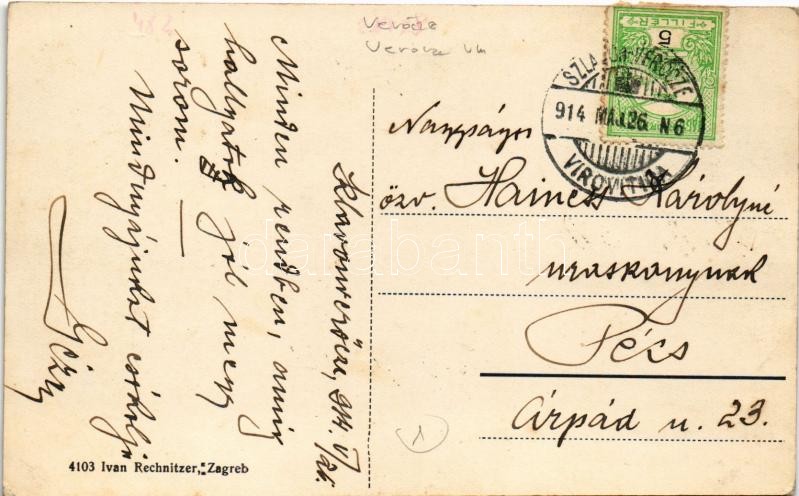 482
Verőce
Verőce vm
FILLER
5
SZLATINA-VERŐCZE
914 MÁJ.26. N6
VIROVITICA
Nagyságos
özv. Hainess Károlyné
uraskonynak
Pécs
Árpád u. 23.
Szlavonverőcze, 914. V/26.
Minden rendben, amíg
hallgatok jól megy
sorom.
Mindnyájukat csókolja
Géza
1
4103 Ivan Rechnitzer, Zagreb
darabanth